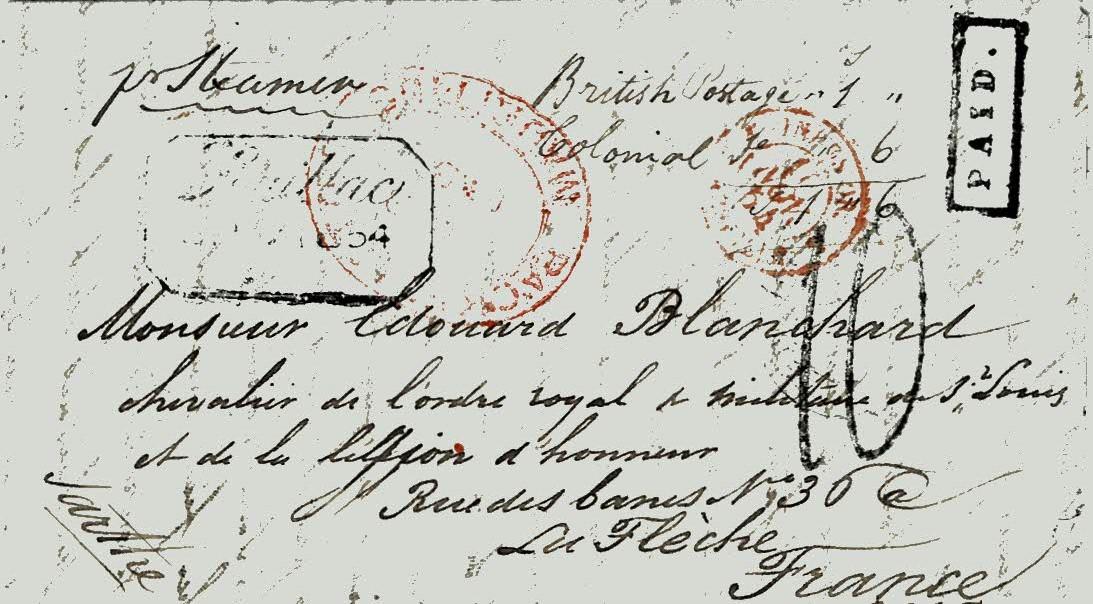 pr Steamer
British Postage " 1 "
Colonial " 6
1 " 6
PAID.
10
Monsieur Edouard Blanchard
chevalier de l'ordre royal & militaire de St Louis
et de la légion d'honneur
Rue des No 36
La Flèche
France
Sarthe